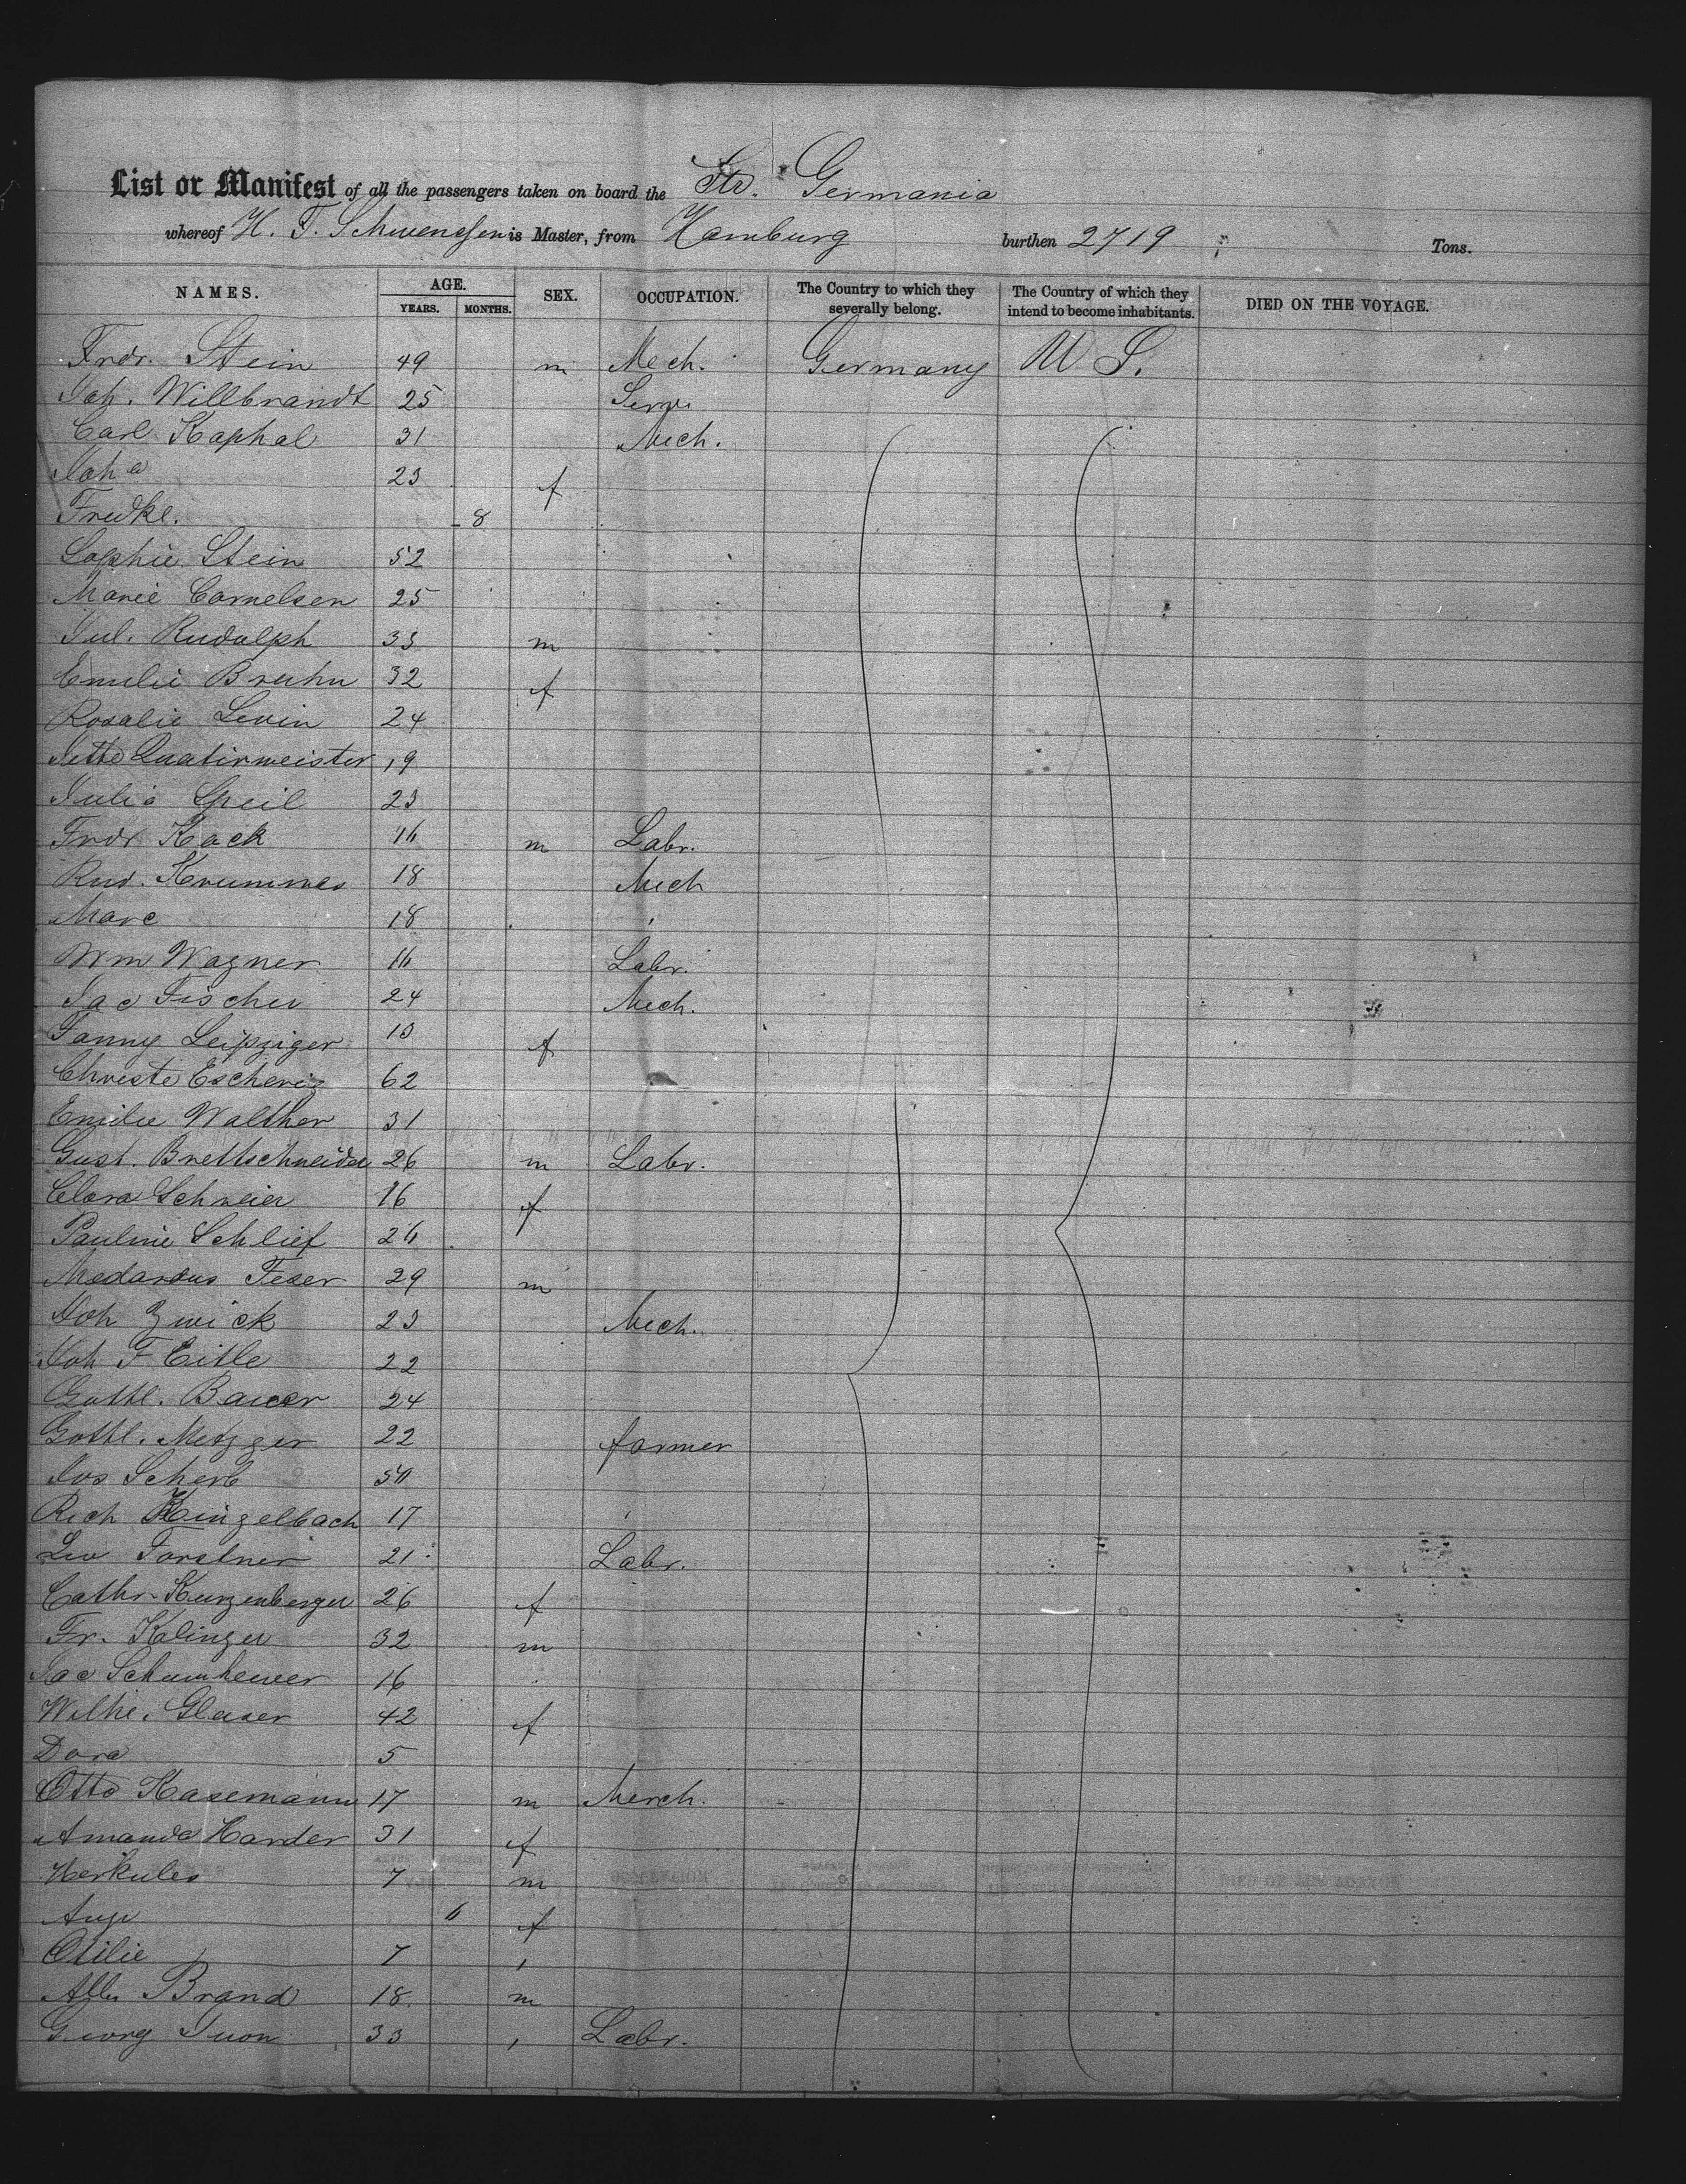 List or Manifest of all the passengers taken on board the Str. Germania
whereof H. F. Schwensen is Master, from Hamburg burthen 2719 Tons.
NAMES. AGE. YEARS. MONTHS. SEX. OCCUPATION. The Country to which they severally belong. The Country of which they intend to become inhabitants. DIED ON THE VOYAGE.
Frdr. Stein 49 m Mech. Germany U S.
Joh. Willbrandt 25 Serv.
Carl Kaphal 31 Mech.
Joh a 23 f
Fredke. 8
Sophie Stein 52
Marie Cornelsen 25
Jul. Rudolph 33 m
Emilie Bruhn 32 f
Rosalie Levin 24
Jette Quatirmeister 19
Julia Speil 23
Frdr Kack 16 m Labr.
Rud. Krummes 18 Mech
Marc 18 "
Wm Wagner 16 Labr.
Jac Fischer 24 Mech.
Fanny Leipziger 10 f
Christe 62
Emilie Walther 31
Gust. Brettschneider 26 m Labr.
Clara Schreier 16 f
Pauline Schlief 26
Medardus Feser 29 m
Joh Zwick 23 Mech.
Joh F Eitle 22
Gottl. Bauer 24
Gottl. Metzger 22 farmer
Jos Scherb 50
Rich Kingelbach 17 "
Leo Forstner 21 Labr.
Cathr. Kurzenberger 26 f
Fr. Klinger 32 m
Jac 16
Wilhe. Glaser 42 f
Dora 5
Otto Kasemann 17 m Merch.
Amanda Harder 31 f
Herkules 7 m
Aug. 6 f
Otilie 7 "
Brand 18 m
Georg 33 " Labr.